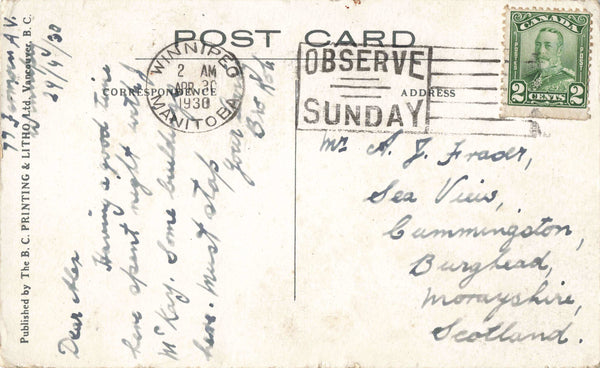 POST CARD
CORRESPONDENCE
ADDRESS
WINNIPEG
2 AM
APR 30
1930
MANITOBA
OBSERVE
SUNDAY
CANADA
2 CENTS 2
Published by The B.C. PRINTING & LITHO Ltd., Vancouver, B.C.
29/4/30
Dear Alex
Having a good time
here spent night with
McKay. Some build
here. Must stop
Your
Bro Rob
Mr A. J. Fraser,
Sea View,
Cummingston,
Burghead,
Morayshire,
Scotland.